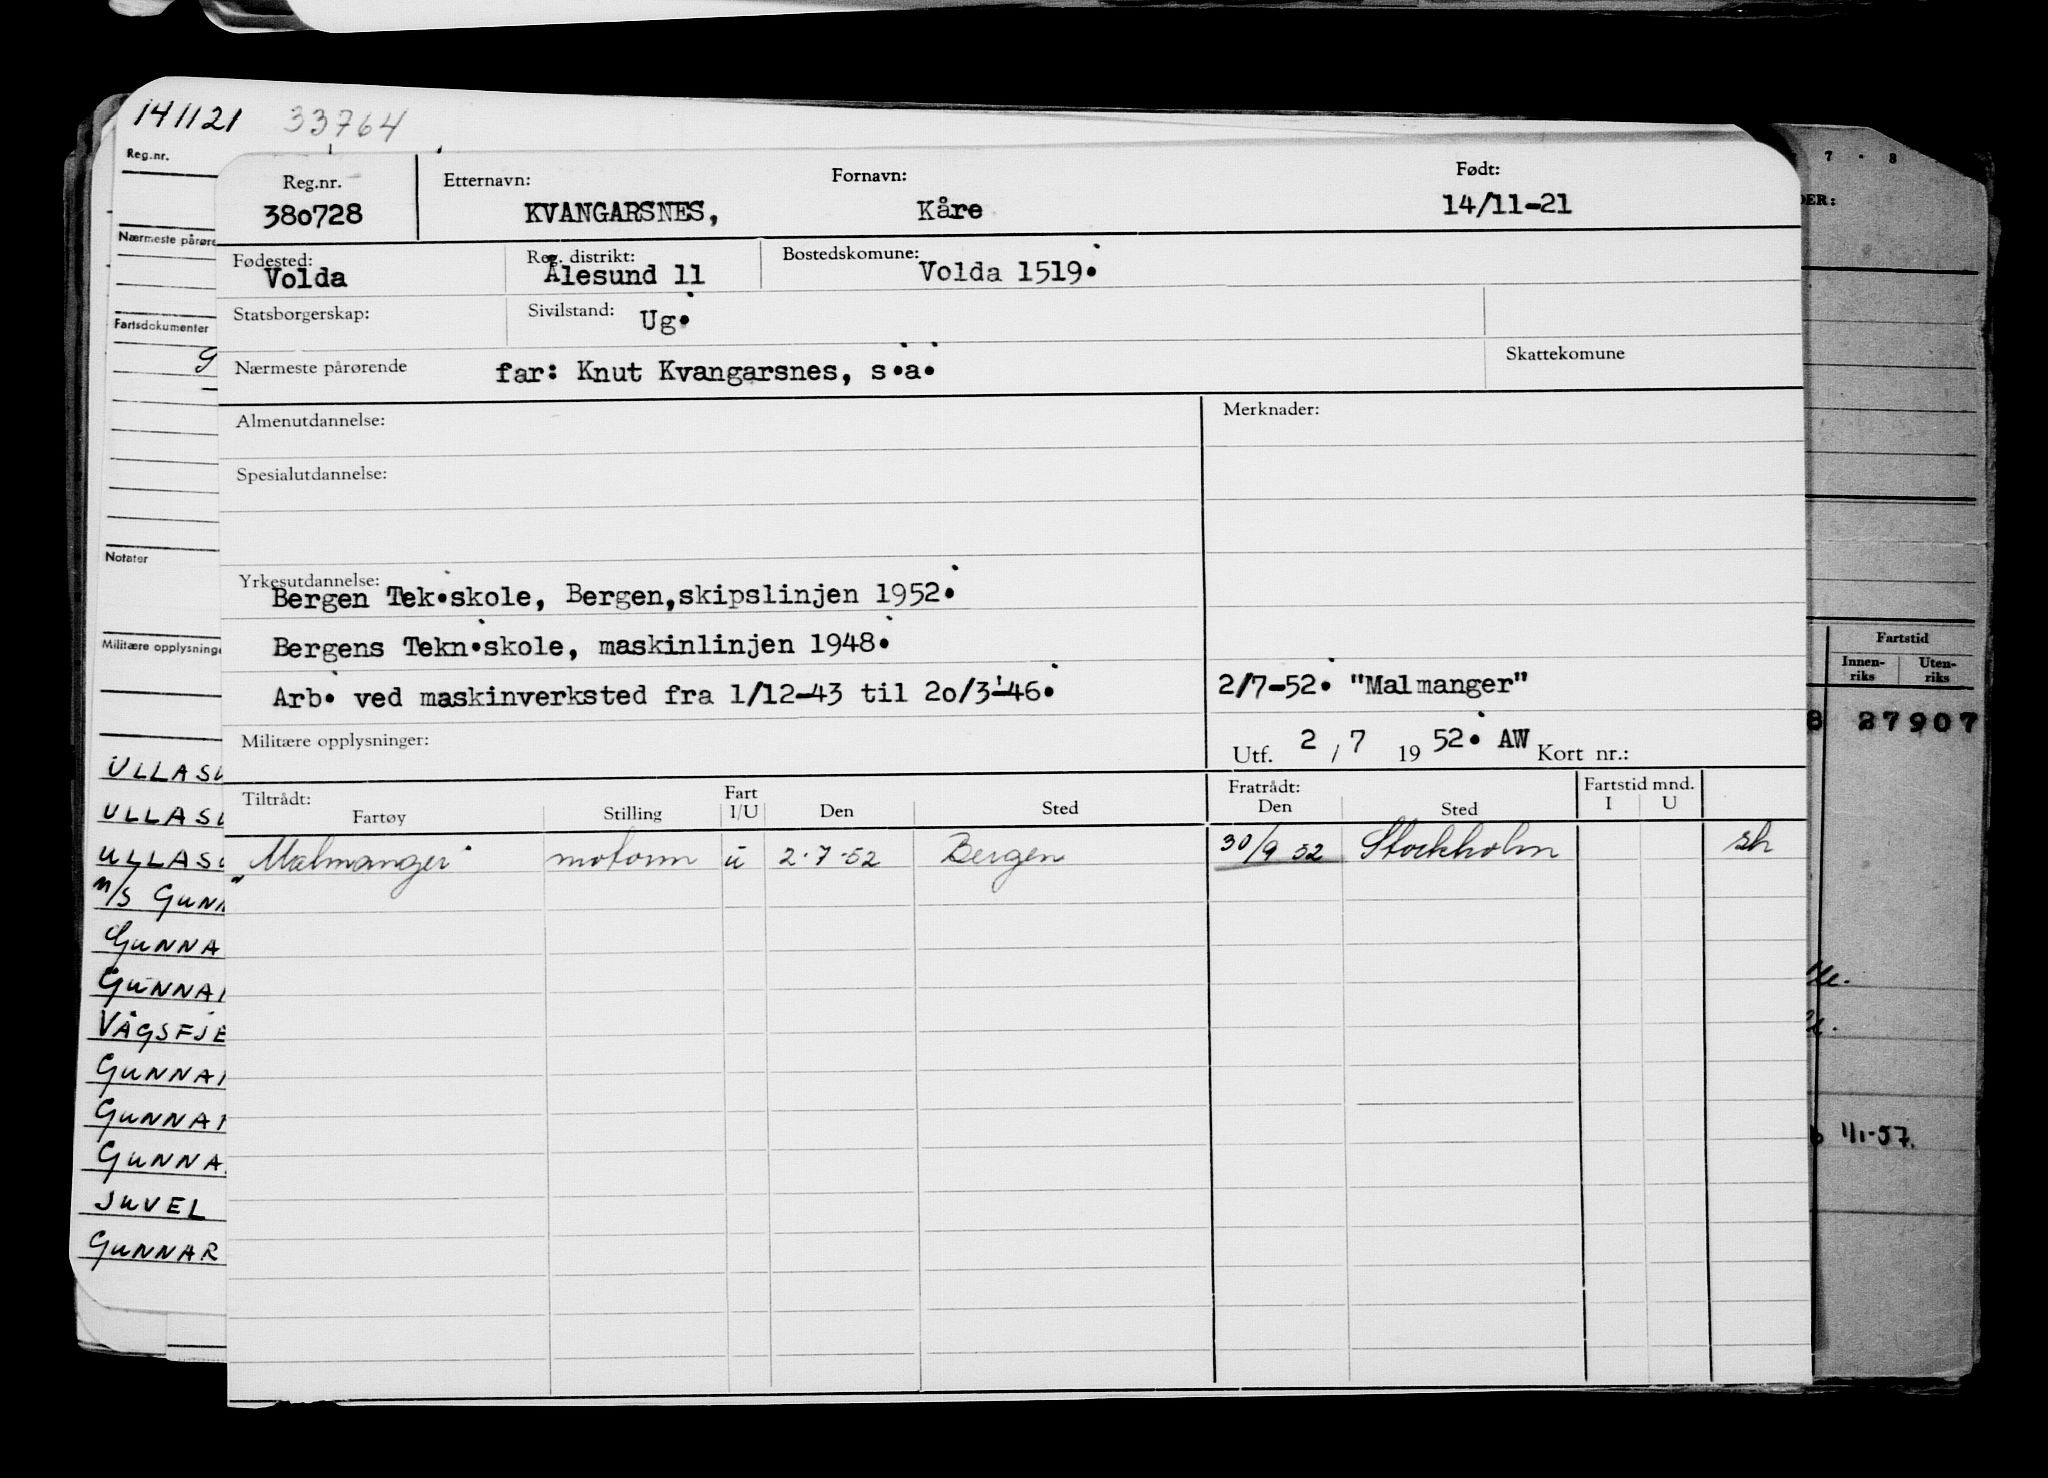 141121 33764
Reg.nr.
Reg.nr. Etternavn: Fornavn: Født:
380728 KVANGARSNES, Kåre 14/11-21
Nærmeste pårøre
Fødested: Reg. distrikt: Bostedskomune:
Volda Ålesund 11 Volda 1519.
Statsborgerskap: Sivilstand: Ug.
Fartsdokumenter
Nærmeste pårørende far: Knut Kvangarsnes, s.a. Skattekomune
Almenutdannelse: Merknader:
Spesialutdannelse:
Notater
Yrkesutdannelse:
Bergen Tek.skole, Bergen,skipslinjen 1952.
Bergens Tekn.skole, maskinlinjen 1948.
Militære opplysninge
Arb. ved maskinverksted fra 1/12-43 til 20/3-46. 2/7-52. "Malmanger"
Militære opplysninger: Utf. 2 / 7 19 52. AW Kort nr.:
Tiltrådt: Fart Fratrådt: Fartstid mnd.
Fartøy Stilling I/U Den Sted Den Sted I U
"Malmanger" motorm u 2-7-52 Bergen 30/9 52 Stockholm sh
ULLASU
ULLASU
ULLASU
M/S GUNN
GUNNA
GUNNAR
VÅGSFJE
GUNNAR
GUNNAR
GUNNA
JUVEL
GUNNAR
7 . 8
DER:
Fartstid
Innen-
riks Uten-
riks
8 27907
1/1-57.